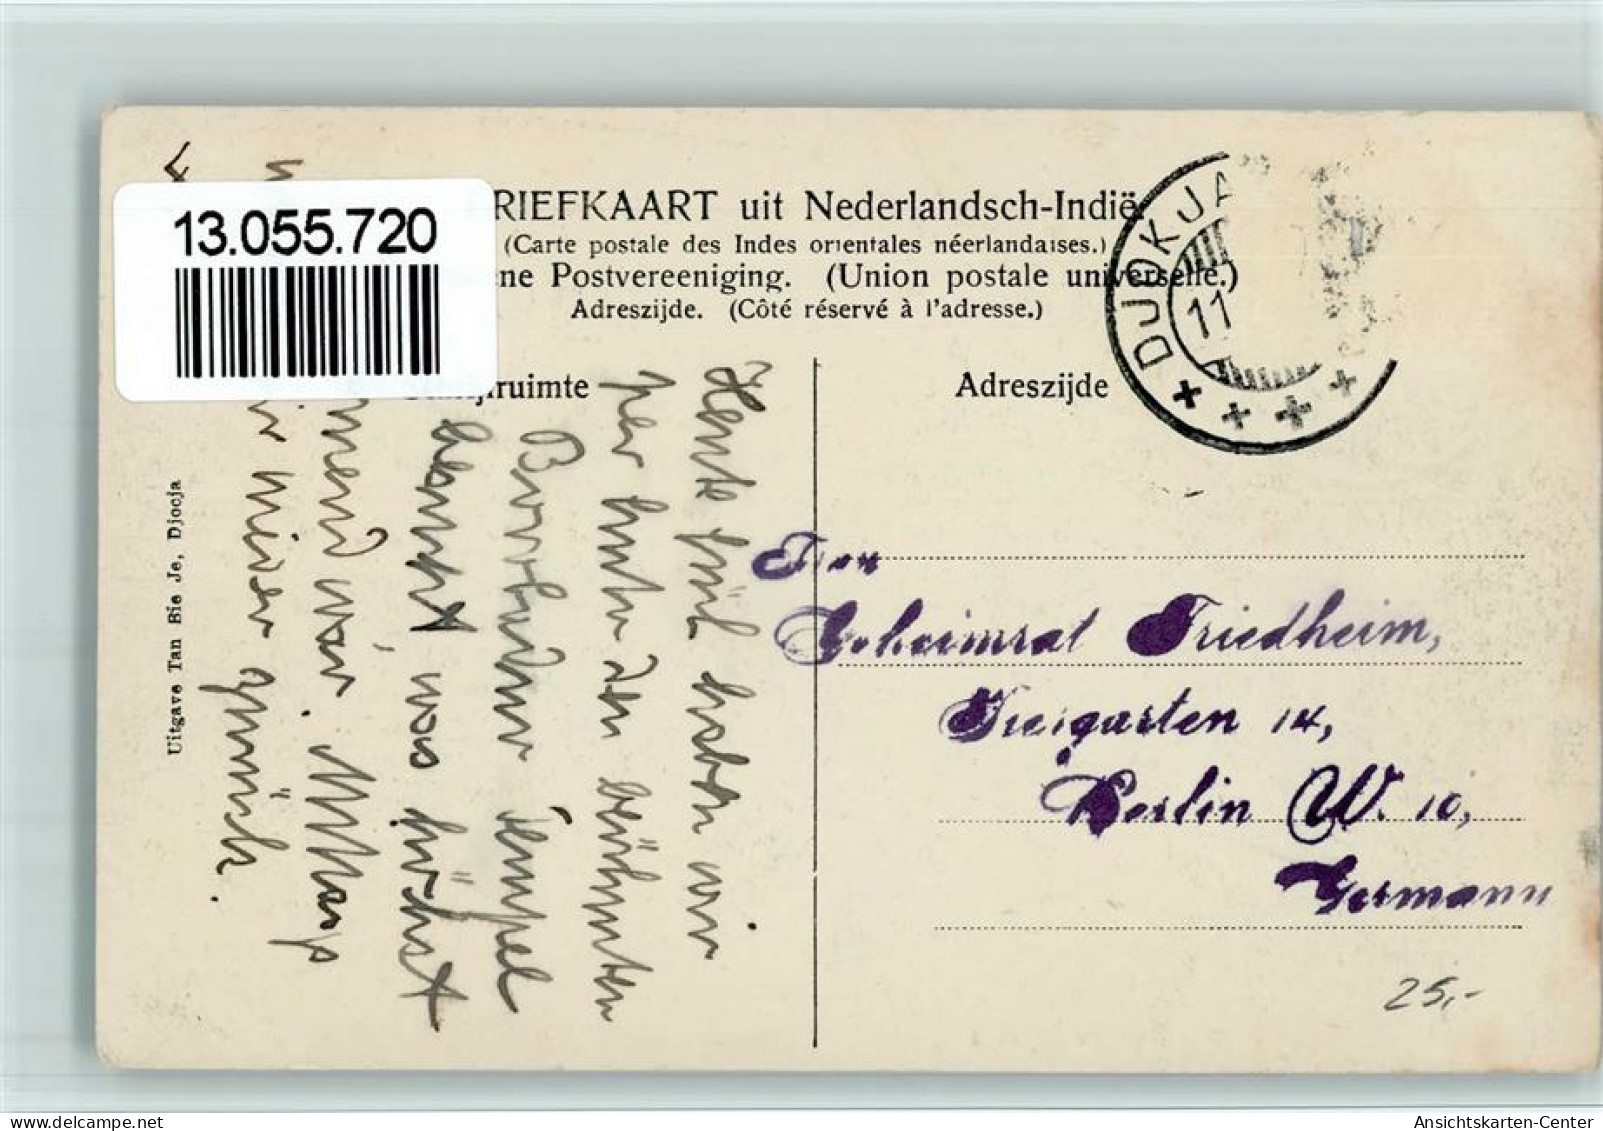 13.055.720
RIEFKAART uit Nederlandsch-Indië.
(Carte postale des Indes orientales néerlandaises.)
ne Postvereeniging. (Union postale universelle.)
Adreszijde. (Côté réservé à l'adresse.)
ruimte
Adreszijde
DJOKJA
11
Heute früh haben wir
per Auto den berühmten
Tempel
besucht was höchst
war.
wieder zurück.
Uitgave Tan Sie Je, Djocja
Frau
Geheimrat Friedheim,
Tiergarten 14,
Berlin W. 10,
Germany
25,-
Ansichtskarten-Center